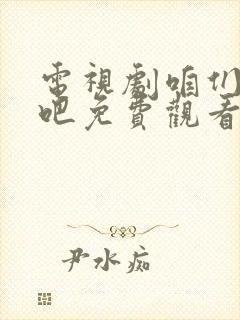 電視劇咱们
吧免費觀看
尹水痴